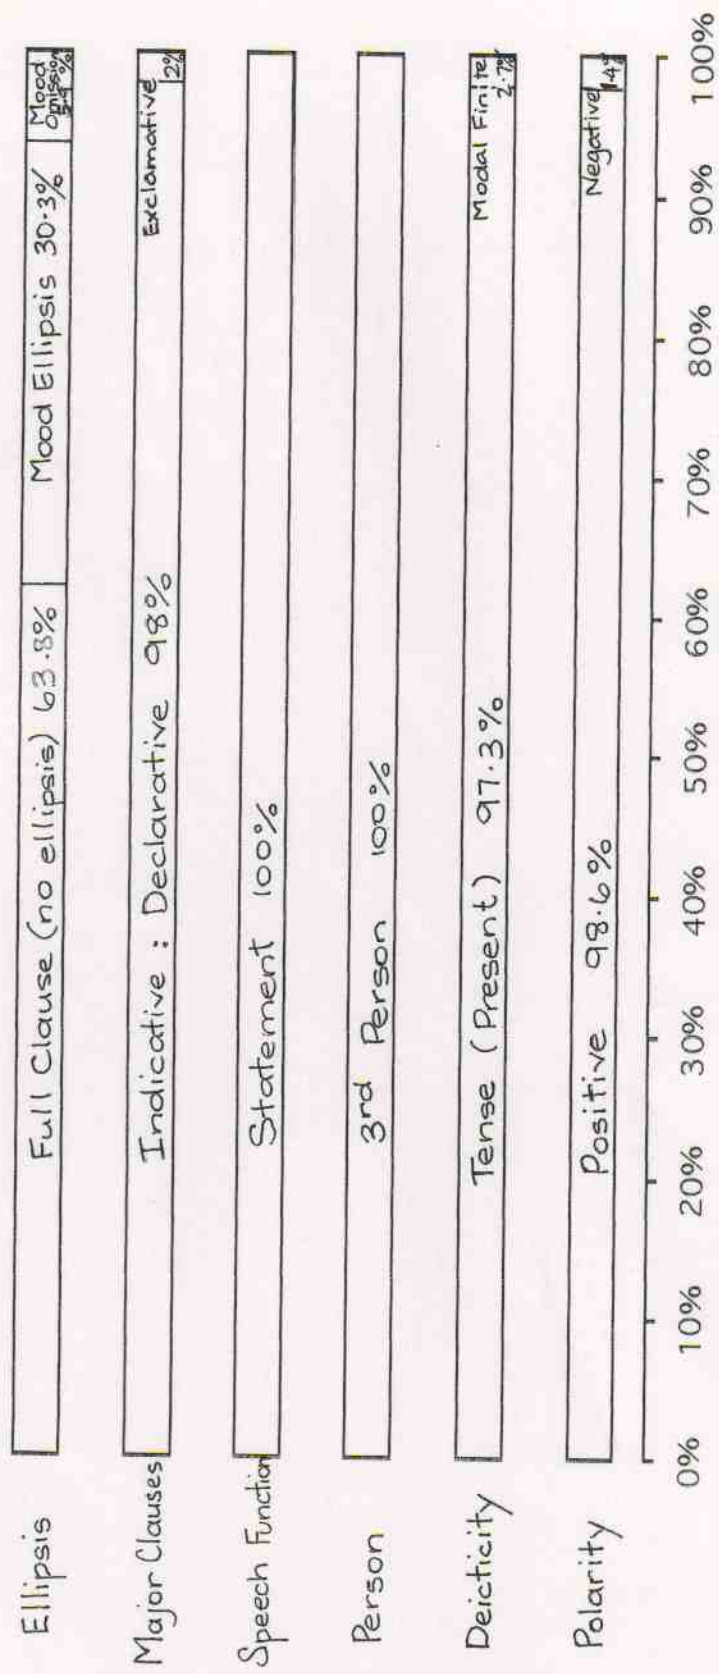 Ellipsis
Full Clause (no ellipsis) 63.8%
Mood Ellipsis 30.3%
Mood
Omission
5.9%
Major Clauses
Indicative : Declarative 98%
Exclamative
2%
Speech Function
Statement 100%
Person
3rd Person 100%
Deicticity
Tense (Present) 97.3%
Modal Finite
2.7%
Polarity
Positive 98.6%
Negative
1.4%
0% 10% 20% 30% 40% 50% 60% 70% 80% 90% 100%